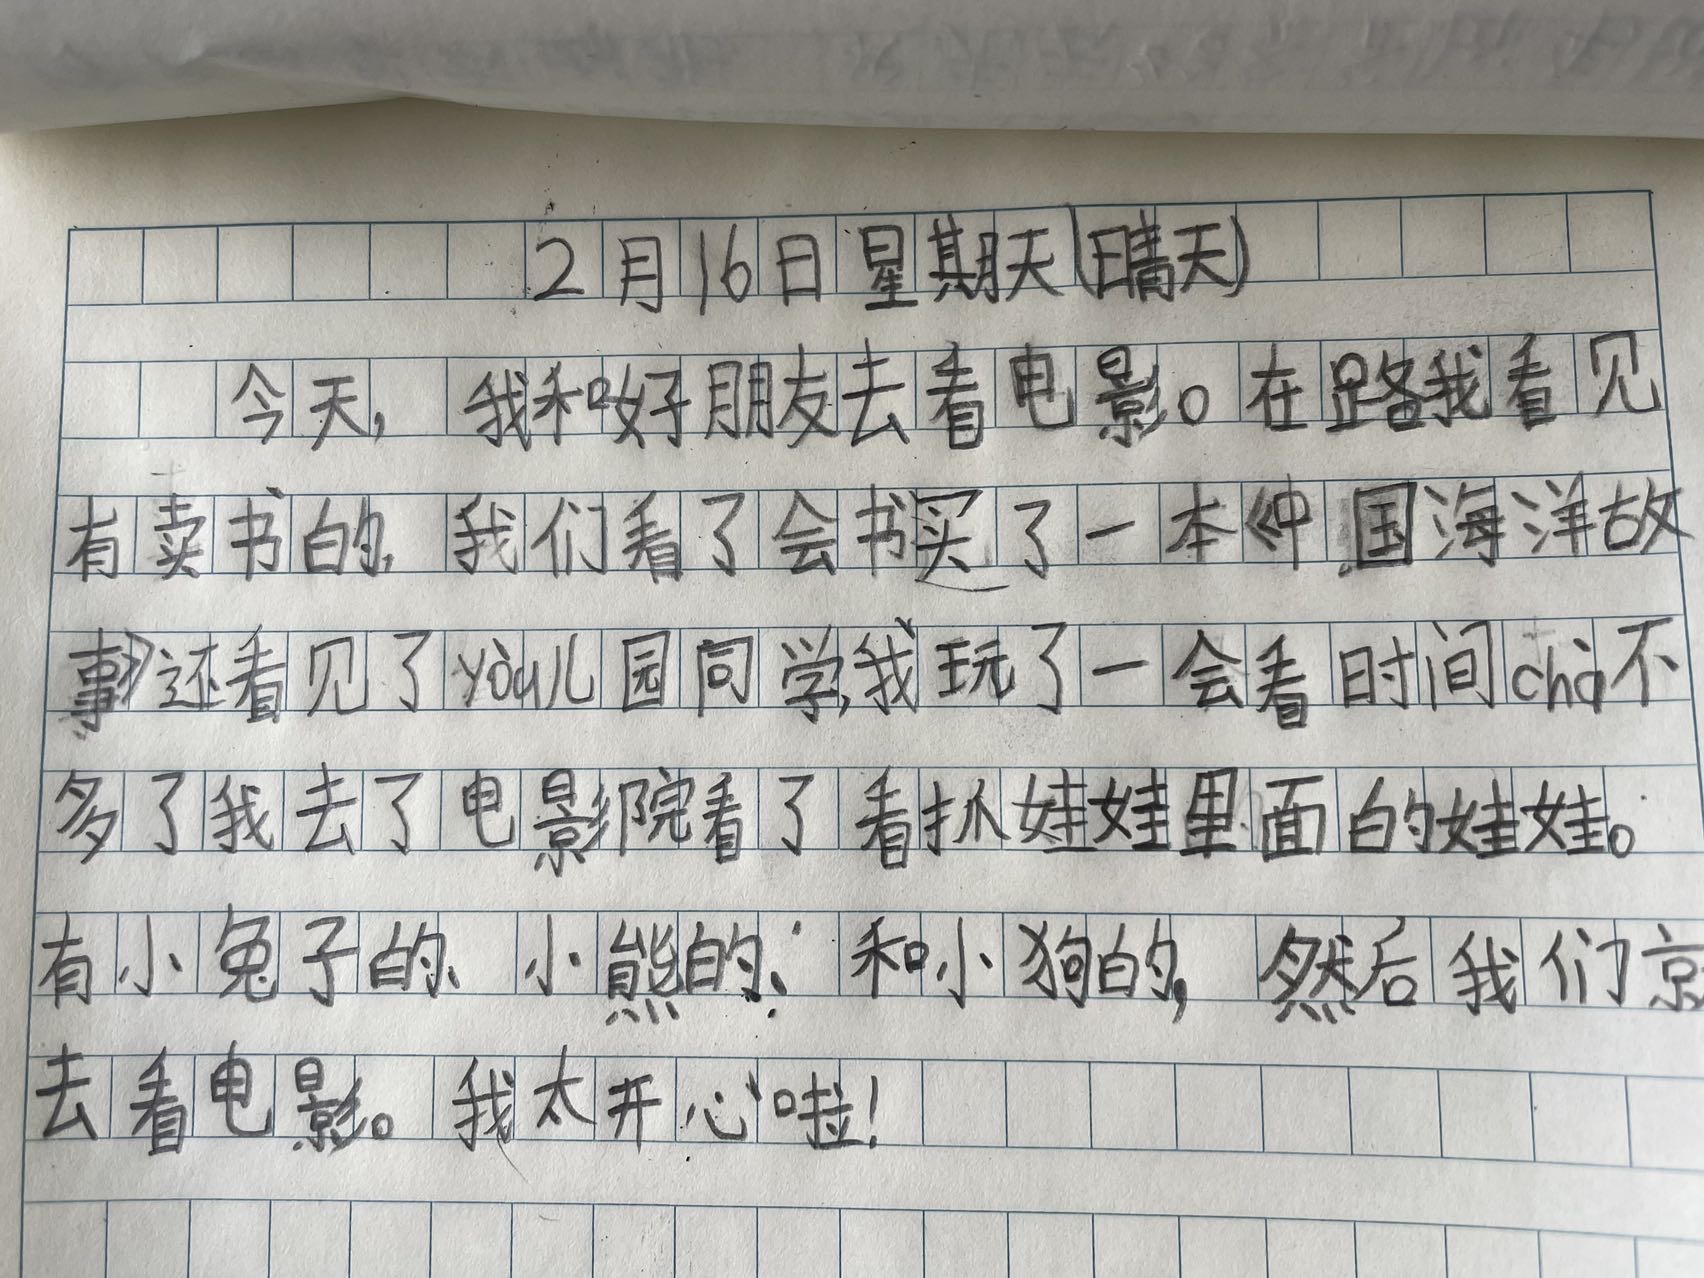 2月16日星期天(晴天)
今天，我和好朋友去看电影。在路我看见
有卖书的，我们看了会书买了一本《中国海洋故
事》还看见了yòu儿园同学，我玩了一会看时间chà不
多了我去了电影院看了看抓娃娃里面的娃娃。
有小兔子的、小熊的、和小狗的，然后我们
去看电影。我太开心啦！